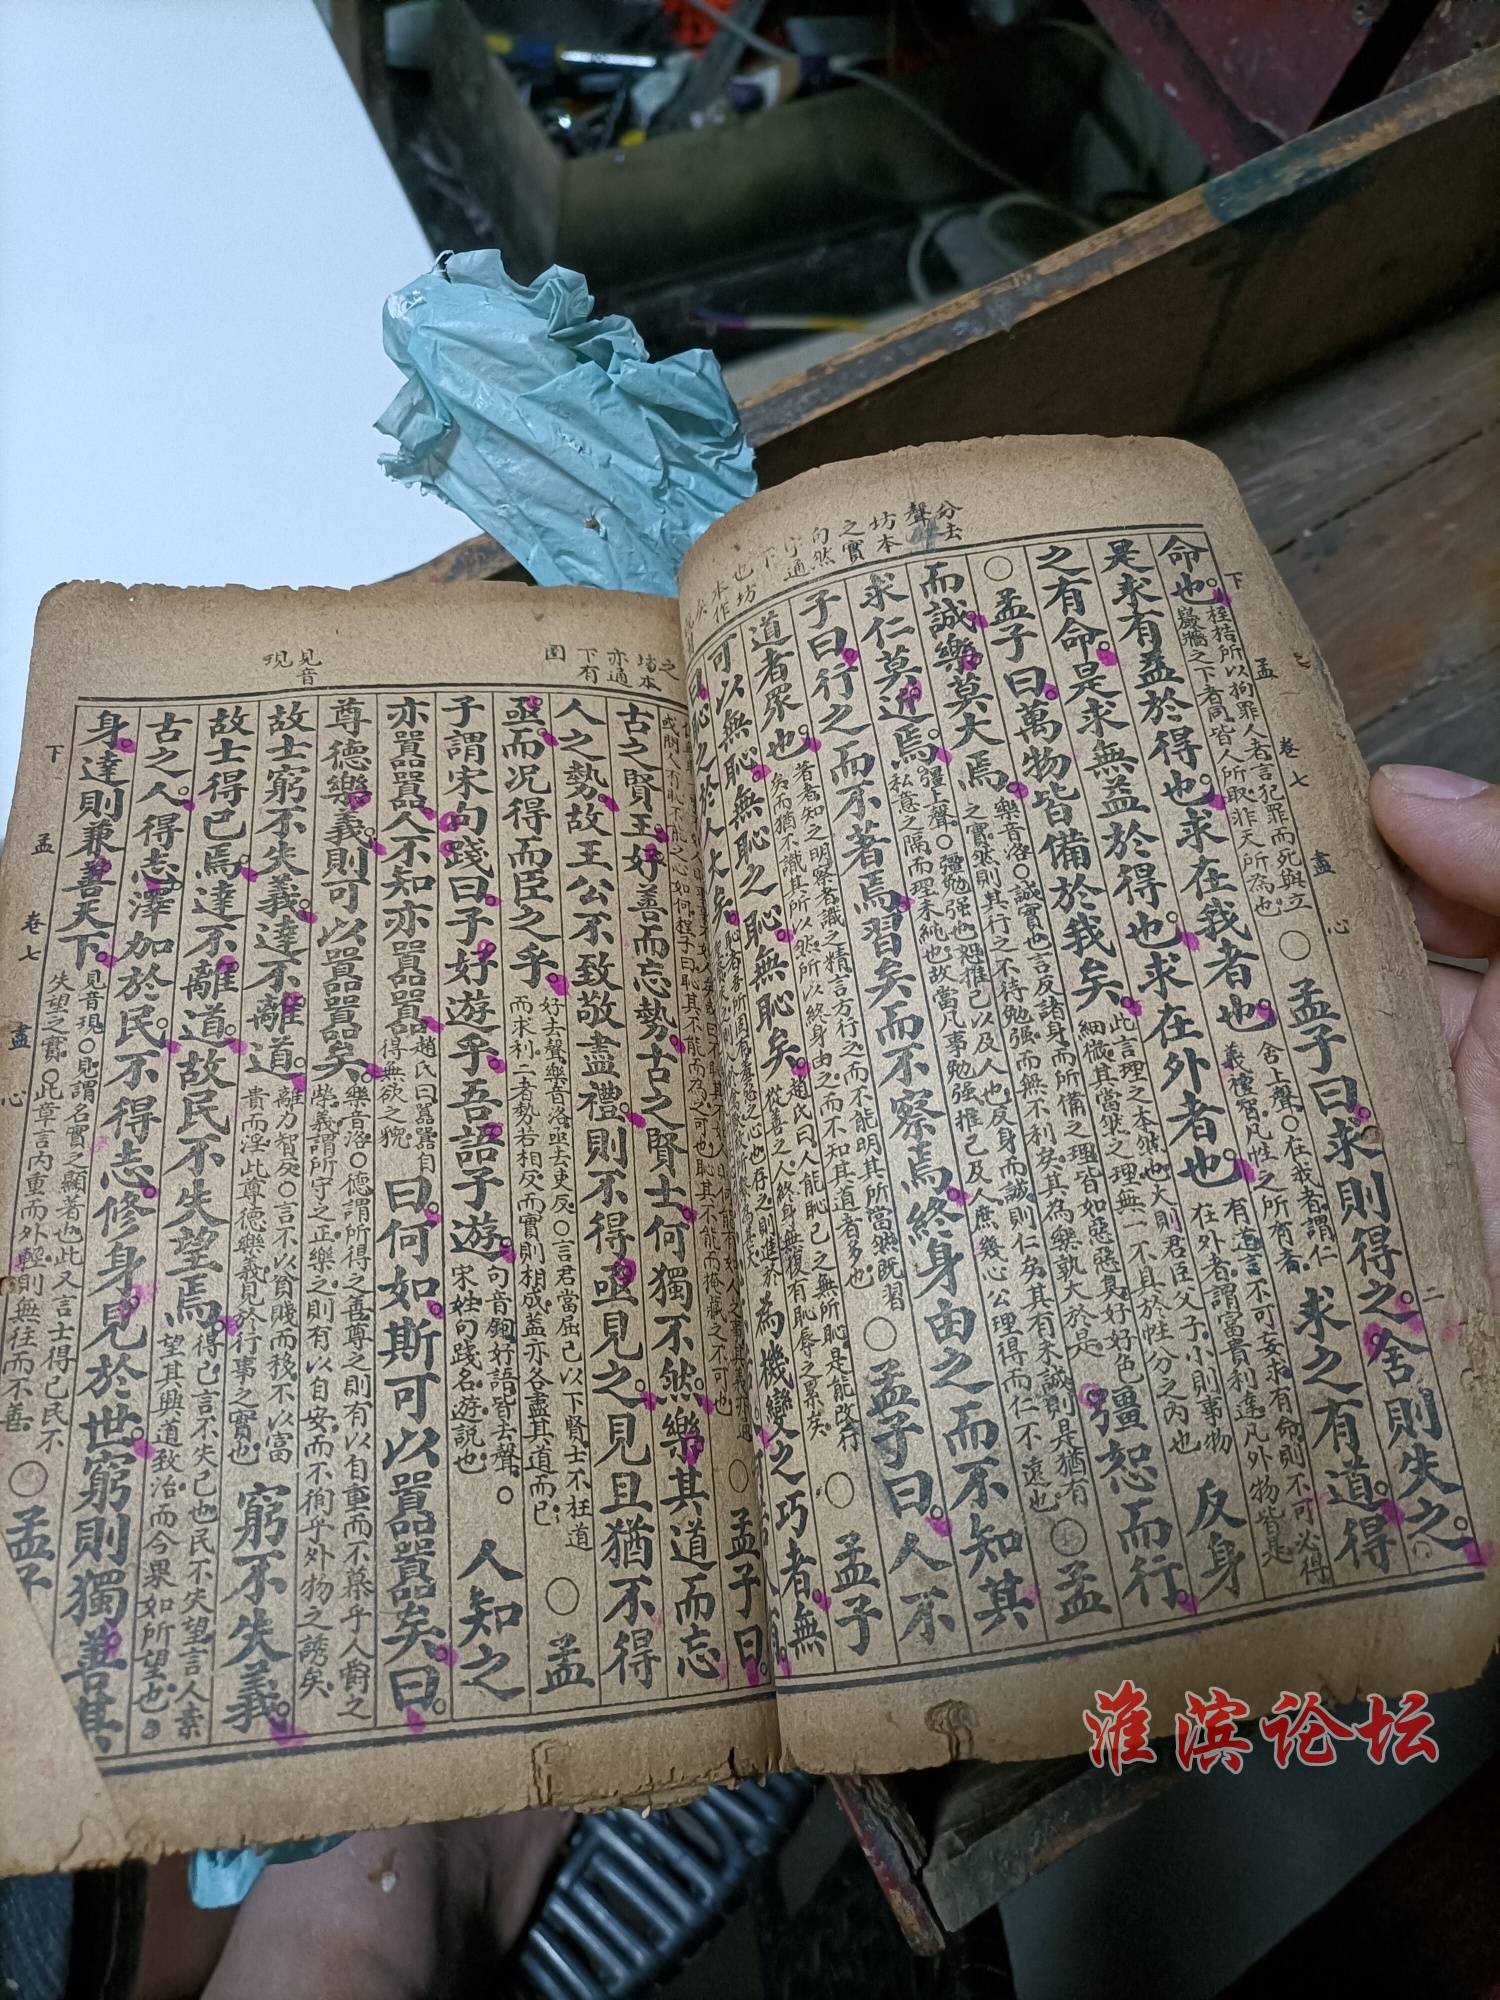 下 孟 卷七 盡心 二
命也。桎梏所以拘罪人者言犯罪而死與立巖牆之下者同皆人所取非天所為也○孟子曰。求則得之。舍則失之。
是求有益於得也。求在我者也。舍上聲。○在我者謂仁義禮智凡性之所有者。求之有道。得
之有命。是求無益於得也。求在外者也。有道言不可妄求有命則不可必得在外者謂富貴利達凡外物皆是
○孟子曰。萬物皆備於我矣。此言理之本然也大則君臣父子小則事物細微其當然之理無一不具於性分之內也反身
而誠。樂莫大焉。樂音洛○誠實也言反諸身而所備之理皆如惡惡臭好好色之實然則其行之不待勉强而無不利矣其為樂孰大於是彊恕而行。
求仁莫近焉。彊上聲○彊勉强也恕推己以及人也反身而誠則仁矣其有未誠則是猶有私意之隔而理未純也故當凡事勉强推己及人庶幾心公理得而仁不遠也○孟
子曰。行之而不著焉。習矣而不察焉。終身由之而不知其
道者眾也。著者知之明察者識之精言方行之而不能明其所當然既習矣而猶不識其所以然所以終身由之而不知其道者多也○孟子曰。人不
可以無恥。無恥之恥。無恥矣。趙氏曰人能恥己之無所恥是能改行從善之人終身無復有恥辱之累矣○孟子
曰。恥之於人大矣。為機變之巧者。無
○孟子曰。
古之賢王。好善而忘勢。古之賢士。何獨不然。樂其道而忘
人之勢。故王公不致敬盡禮。則不得亟見之。見且猶不得
亟。而況得而臣之乎。好去聲樂音洛亟去吏反○言君當屈己以下賢士不枉道而求利二者勢若相反而實則相成蓋亦各盡其道而已○孟
子謂宋句踐曰。子好遊乎。吾語子遊。句音鉤好語皆去聲。○宋姓句踐名遊說也人知之
亦囂囂。人不知亦囂囂。趙氏曰囂囂自得無欲之貌曰。何如。斯可以囂囂矣。曰。
尊德樂義。則可以囂囂矣。樂音洛○德謂所得之善尊之則有以自重而不慕乎人爵之榮義謂所守之正樂之則有以自安而不徇乎外物之誘矣
故士窮不失義。達不離道。離力智反○言不以貧賤而移不以富貴而淫此尊德樂義見於行事之實也窮不失義。
故士得己焉。達不離道。故民不失望焉。得己言不失己也民不失望言人素望其興道致治而今果如所望也
古之人。得志。澤加於民。不得志。修身見於世。窮則獨善其
身。達則兼善天下。見音現○見謂名實之顯著也此又言士得己民不失望之實。○此章言內重而外輕則無往而不善○孟子
下 孟 卷七 盡心
見音
現
淮滨论坛